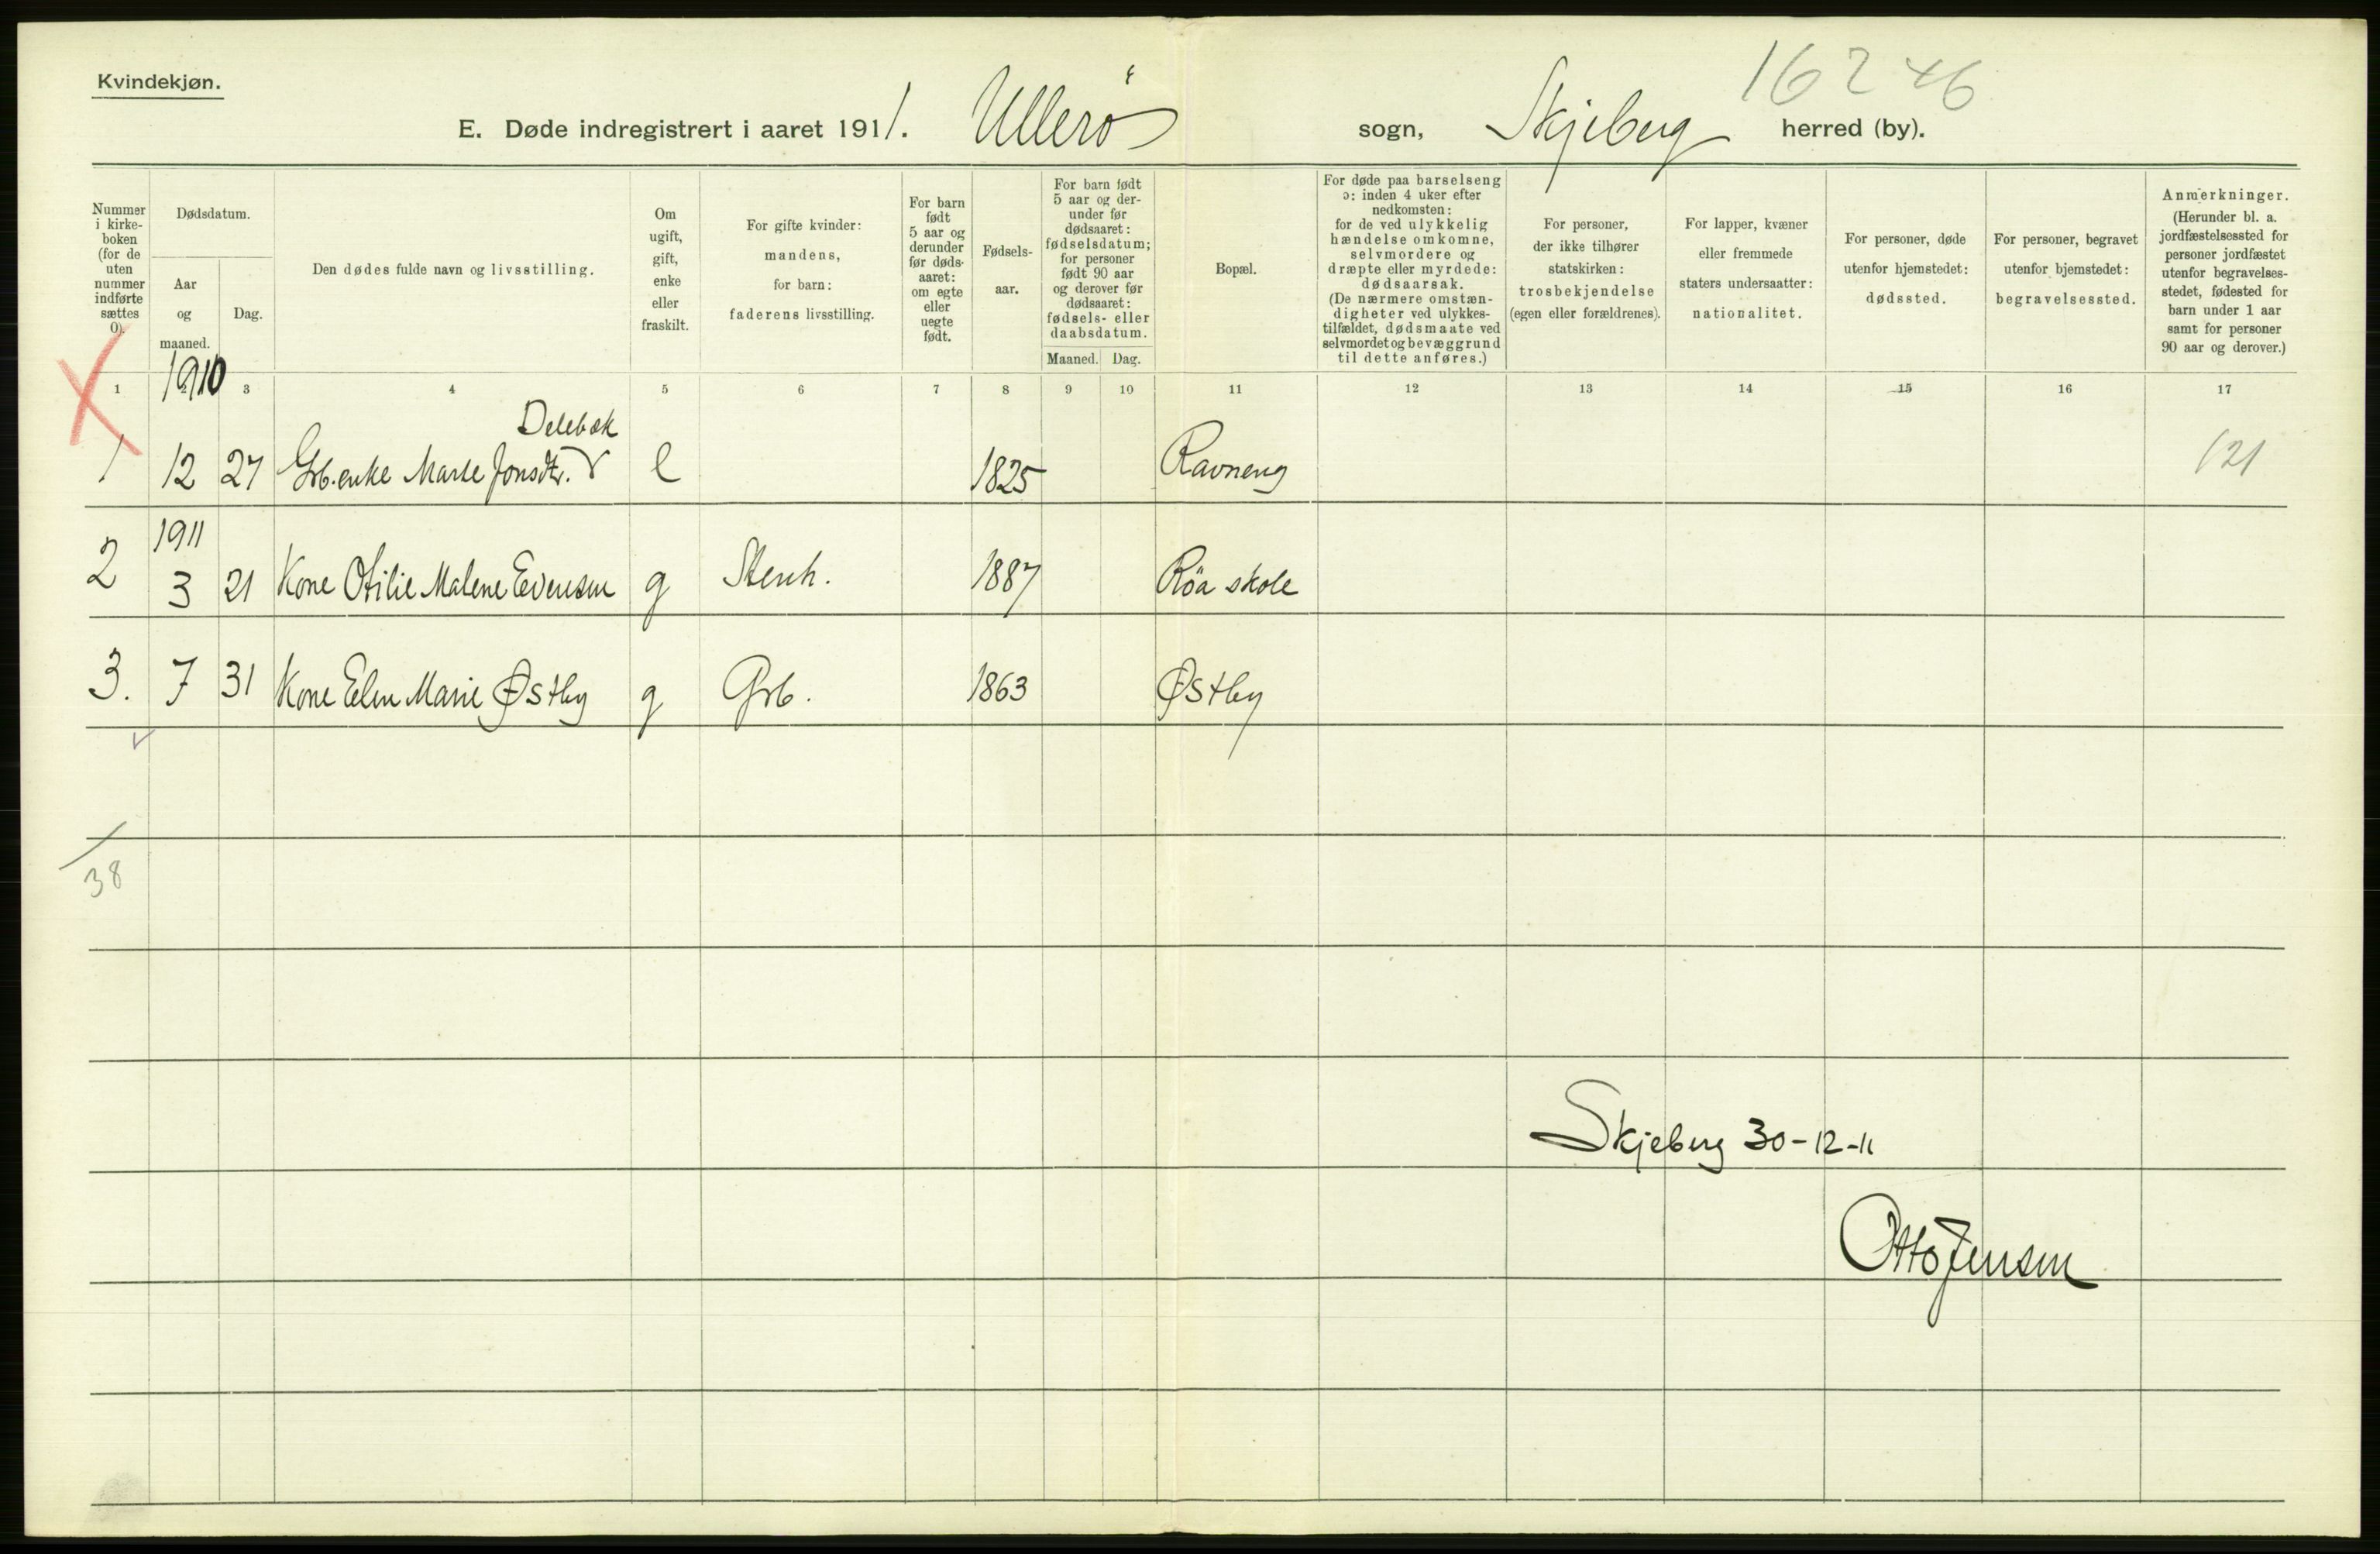 Kvindekjøn.
16246
E. Døde indregistrert i aaret 1911. Ullerö sogn, Skjeberg herred (by).
Nummer i kirke-boken (for de uten nummer indførte sættes 0).
Dødsdatum.
Aar og maaned.
Dag.
Den dødes fulde navn og livsstilling.
Om ugift, gift, enke eller fraskilt.
For gifte kvinder: mandens, for barn: faderens livsstilling.
For barn født 5 aar og derunder før døds-aaret: om egte eller uegte født.
Fødsels-aar.
For barn født 5 aar og der-under før dødsaaret: fødselsdatum; for personer født 90 aar og derover før dødsaaret: fødsels- eller daabsdatum.
Maaned. Dag.
Bopæl.
For døde paa barselseng ɔ: inden 4 uker efter nedkomsten: for de ved ulykkelig hændelse omkomne, selvmordere og dræpte eller myrdede: dødsaarsak. (De nærmere omstæn-digheter ved ulykkes-tilfældet, dødsmaate ved selvmordet og bevæggrund til dette anføres.)
For personer, der ikke tilhører statskirken: trosbekjendelse (egen eller forældrenes).
For lapper, kvæner eller fremmede staters undersaatter: nationalitet.
For personer, døde utenfor hjemstedet: dødssted.
For personer, begravet utenfor bjemstedet: begravelsessted.
Anmerkninger. (Herunder bl. a. jordfæstelsessted for personer jordfæstet utenfor begravelses-stedet, fødested for barn under 1 aar samt for personer 90 aar og derover.)
1 3 4 5 6 7 8 9 10 11 12 13 14 15 16 17
1910
Delebæk
1 12 27 Grb.enke Marte Jonsdtr. e 1825 Ravneng 121
1911
2 3 21 Kone Otilie Malene Evensen g Stenh. 1887 Röa skole
3. 7 31 Kone Elen Marie Østby g Grb. 1863 Østby
38
Skjeberg 30-12-11
Otto Jensen